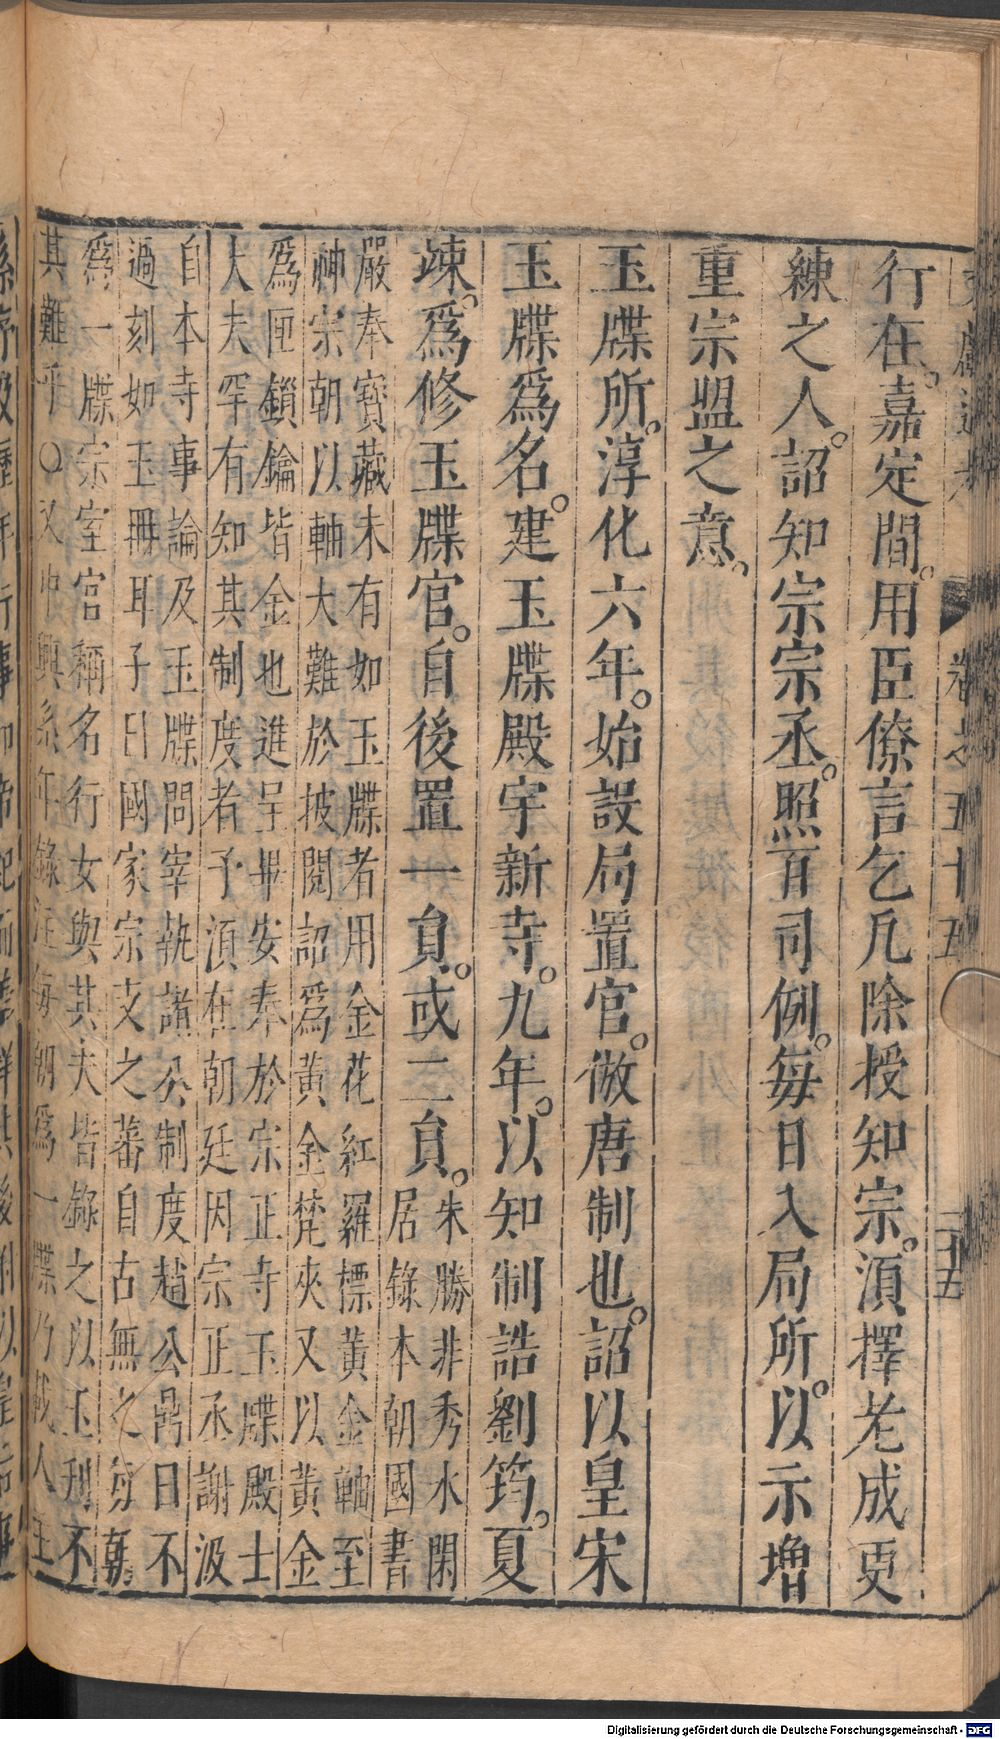 卷之五十五
二十五
行在。嘉定間。用臣僚言乞凡除授知宗。須擇老成更
練之人。詔知宗宗丞。照百司例。每日入局所。以示增
重宗盟之意。
玉牒所。淳化六年。始設局置官。倣唐制也。詔以皇宋
玉牒爲名。建玉牒殿宇新寺。九年。以知制誥劉筠。夏
竦。爲修玉牒官。自後置一員。或二員。
朱勝非秀水閑
居錄本朝國書
嚴奉寶藏未有如玉牒者用金花紅羅標黃金軸至
神宗朝以軸大難於披閱詔爲黃金梵夾又以黃金
爲匣鎖鑰皆金也進呈畢安奉於宗正寺玉牒殿士
大夫罕有知其制度者予頃在朝廷因宗正丞謝汲
自本寺事論及玉牒問宰執諸公制度趙公鼎曰不
過刻如玉冊耳子曰國家宗支之蕃自古無之每朝
爲一牒宗室官稱名行女與其夫皆錄之以玉刋不
其難乎○又中興系年錄注每朝爲一牒乃載人主
Digitalisierung gefördert durch die Deutsche Forschungsgemeinschaft - DFG